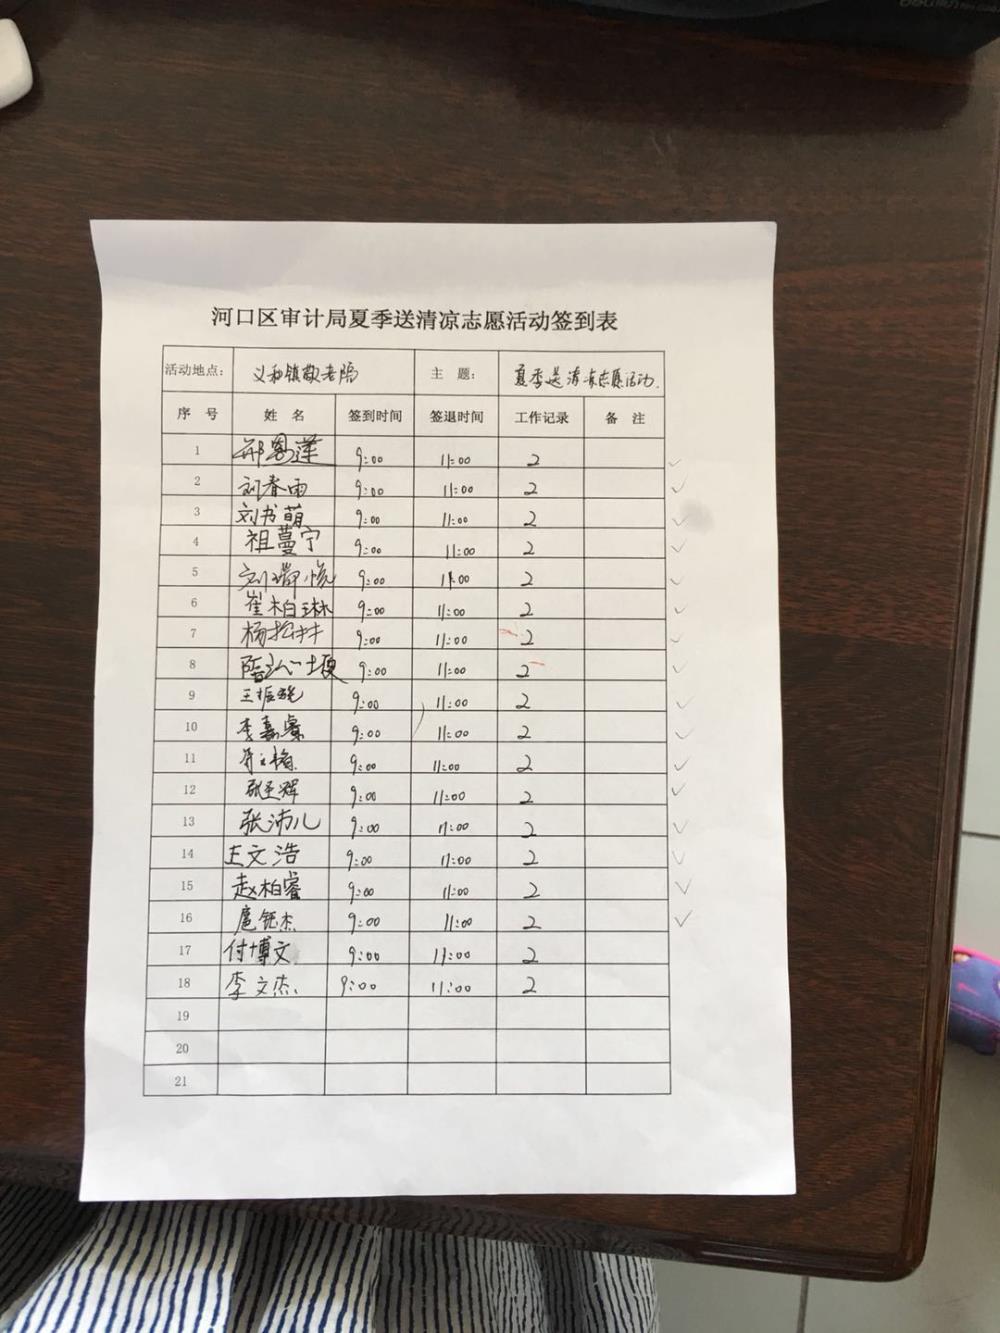 河口区审计局夏季送清凉志愿活动签到表
活动地点： 义和镇敬老院 主 题： 夏季送清凉志愿活动.
序 号 姓 名 签到时间 签退时间 工作记录 备 注
1 9:00 11:00 2
2 刘春雨 9:00 11:00 2
3 刘书萌 9:00 11:00 2
4 祖蔓宁 9:00 11:00 2
5 刘瑞悦 9:00 11:00 2
6 崔柏琳 9:00 11:00 2
7 9:00 11:00 2
8 9:00 11:00 2
9 9:00 11:00 2
10 李嘉睿 9:00 11:00 2
11 9:00 11:00 2
12 9:00 11:00 2
13 张沛儿 9:00 11:00 2
14 王文浩 9:00 11:00 2
15 赵柏睿 9:00 11:00 2
16 9:00 11:00 2
17 付博文 9:00 11:00 2
18 李文杰 9:00 11:00 2
19
20
21